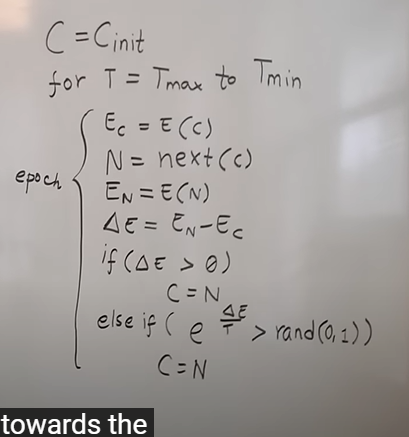 C = Cinit
for T = Tmax to Tmin
Ec = E(c)
N = next(c)
epoch
EN = E(N)
ΔE = EN-Ec
if (ΔE > 0)
C = N
else if ( e ΔE/T > rand(0,1))
C = N
towards the